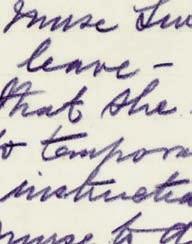 nurse
leave -
that she
to tempora
instructed
nurse to